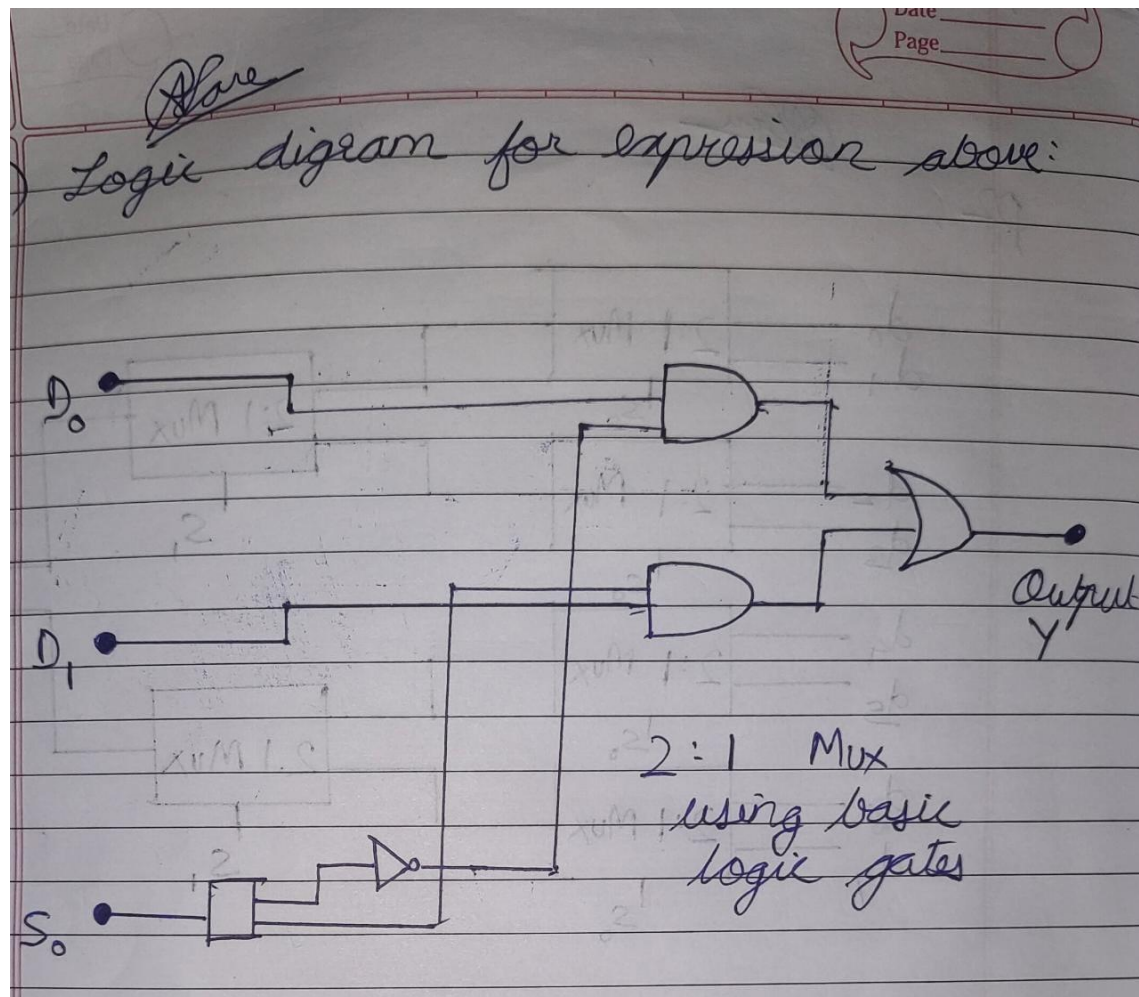 Date
Page
Logic digram for expression above:
D₀
D₁
Output
Y
2:1 Mux
using basic
logic gates
S₀